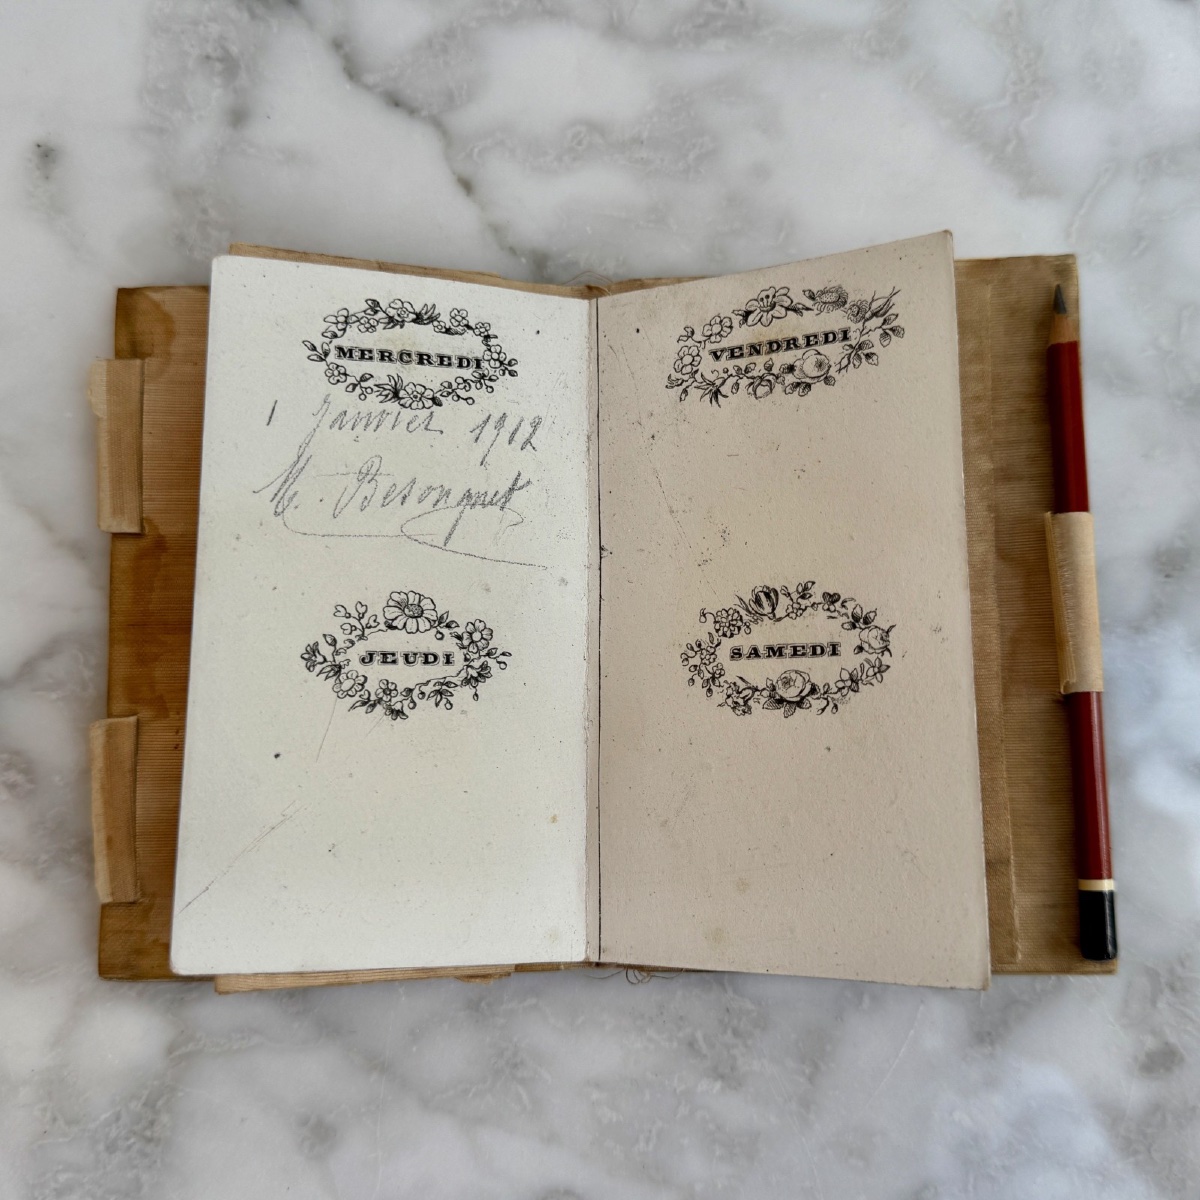 MERCREDI
1 Janvier 1912
M. Besongnet
JEUDI
VENDREDI
SAMEDI